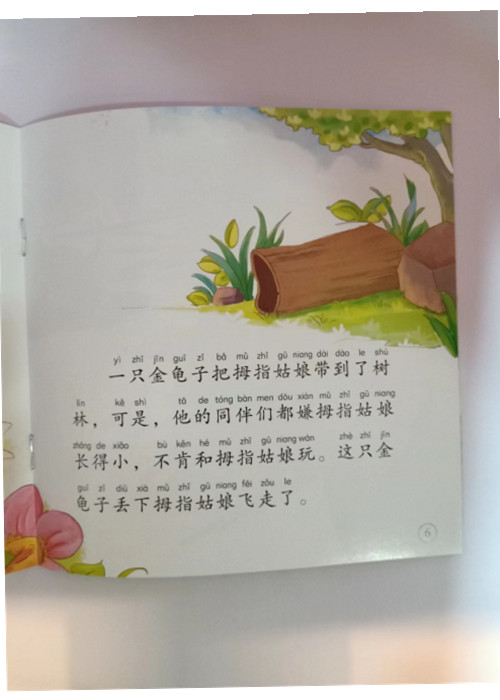 yì zhī jīn guī zǐ bǎ mǔ zhǐ gū niang dài dào le shù
一只金龟子把拇指姑娘带到了树
lín kě shì tā de tóng bàn men dōu xián mǔ zhǐ gū niang
林，可是，他的同伴们都嫌拇指姑娘
zhǎng de xiǎo bù kěn hé mǔ zhǐ gū niang wán zhè zhī jīn
长得小，不肯和拇指姑娘玩。这只金
guī zǐ diū xià mǔ zhǐ gū niang fēi zǒu le
龟子丢下拇指姑娘飞走了。
6